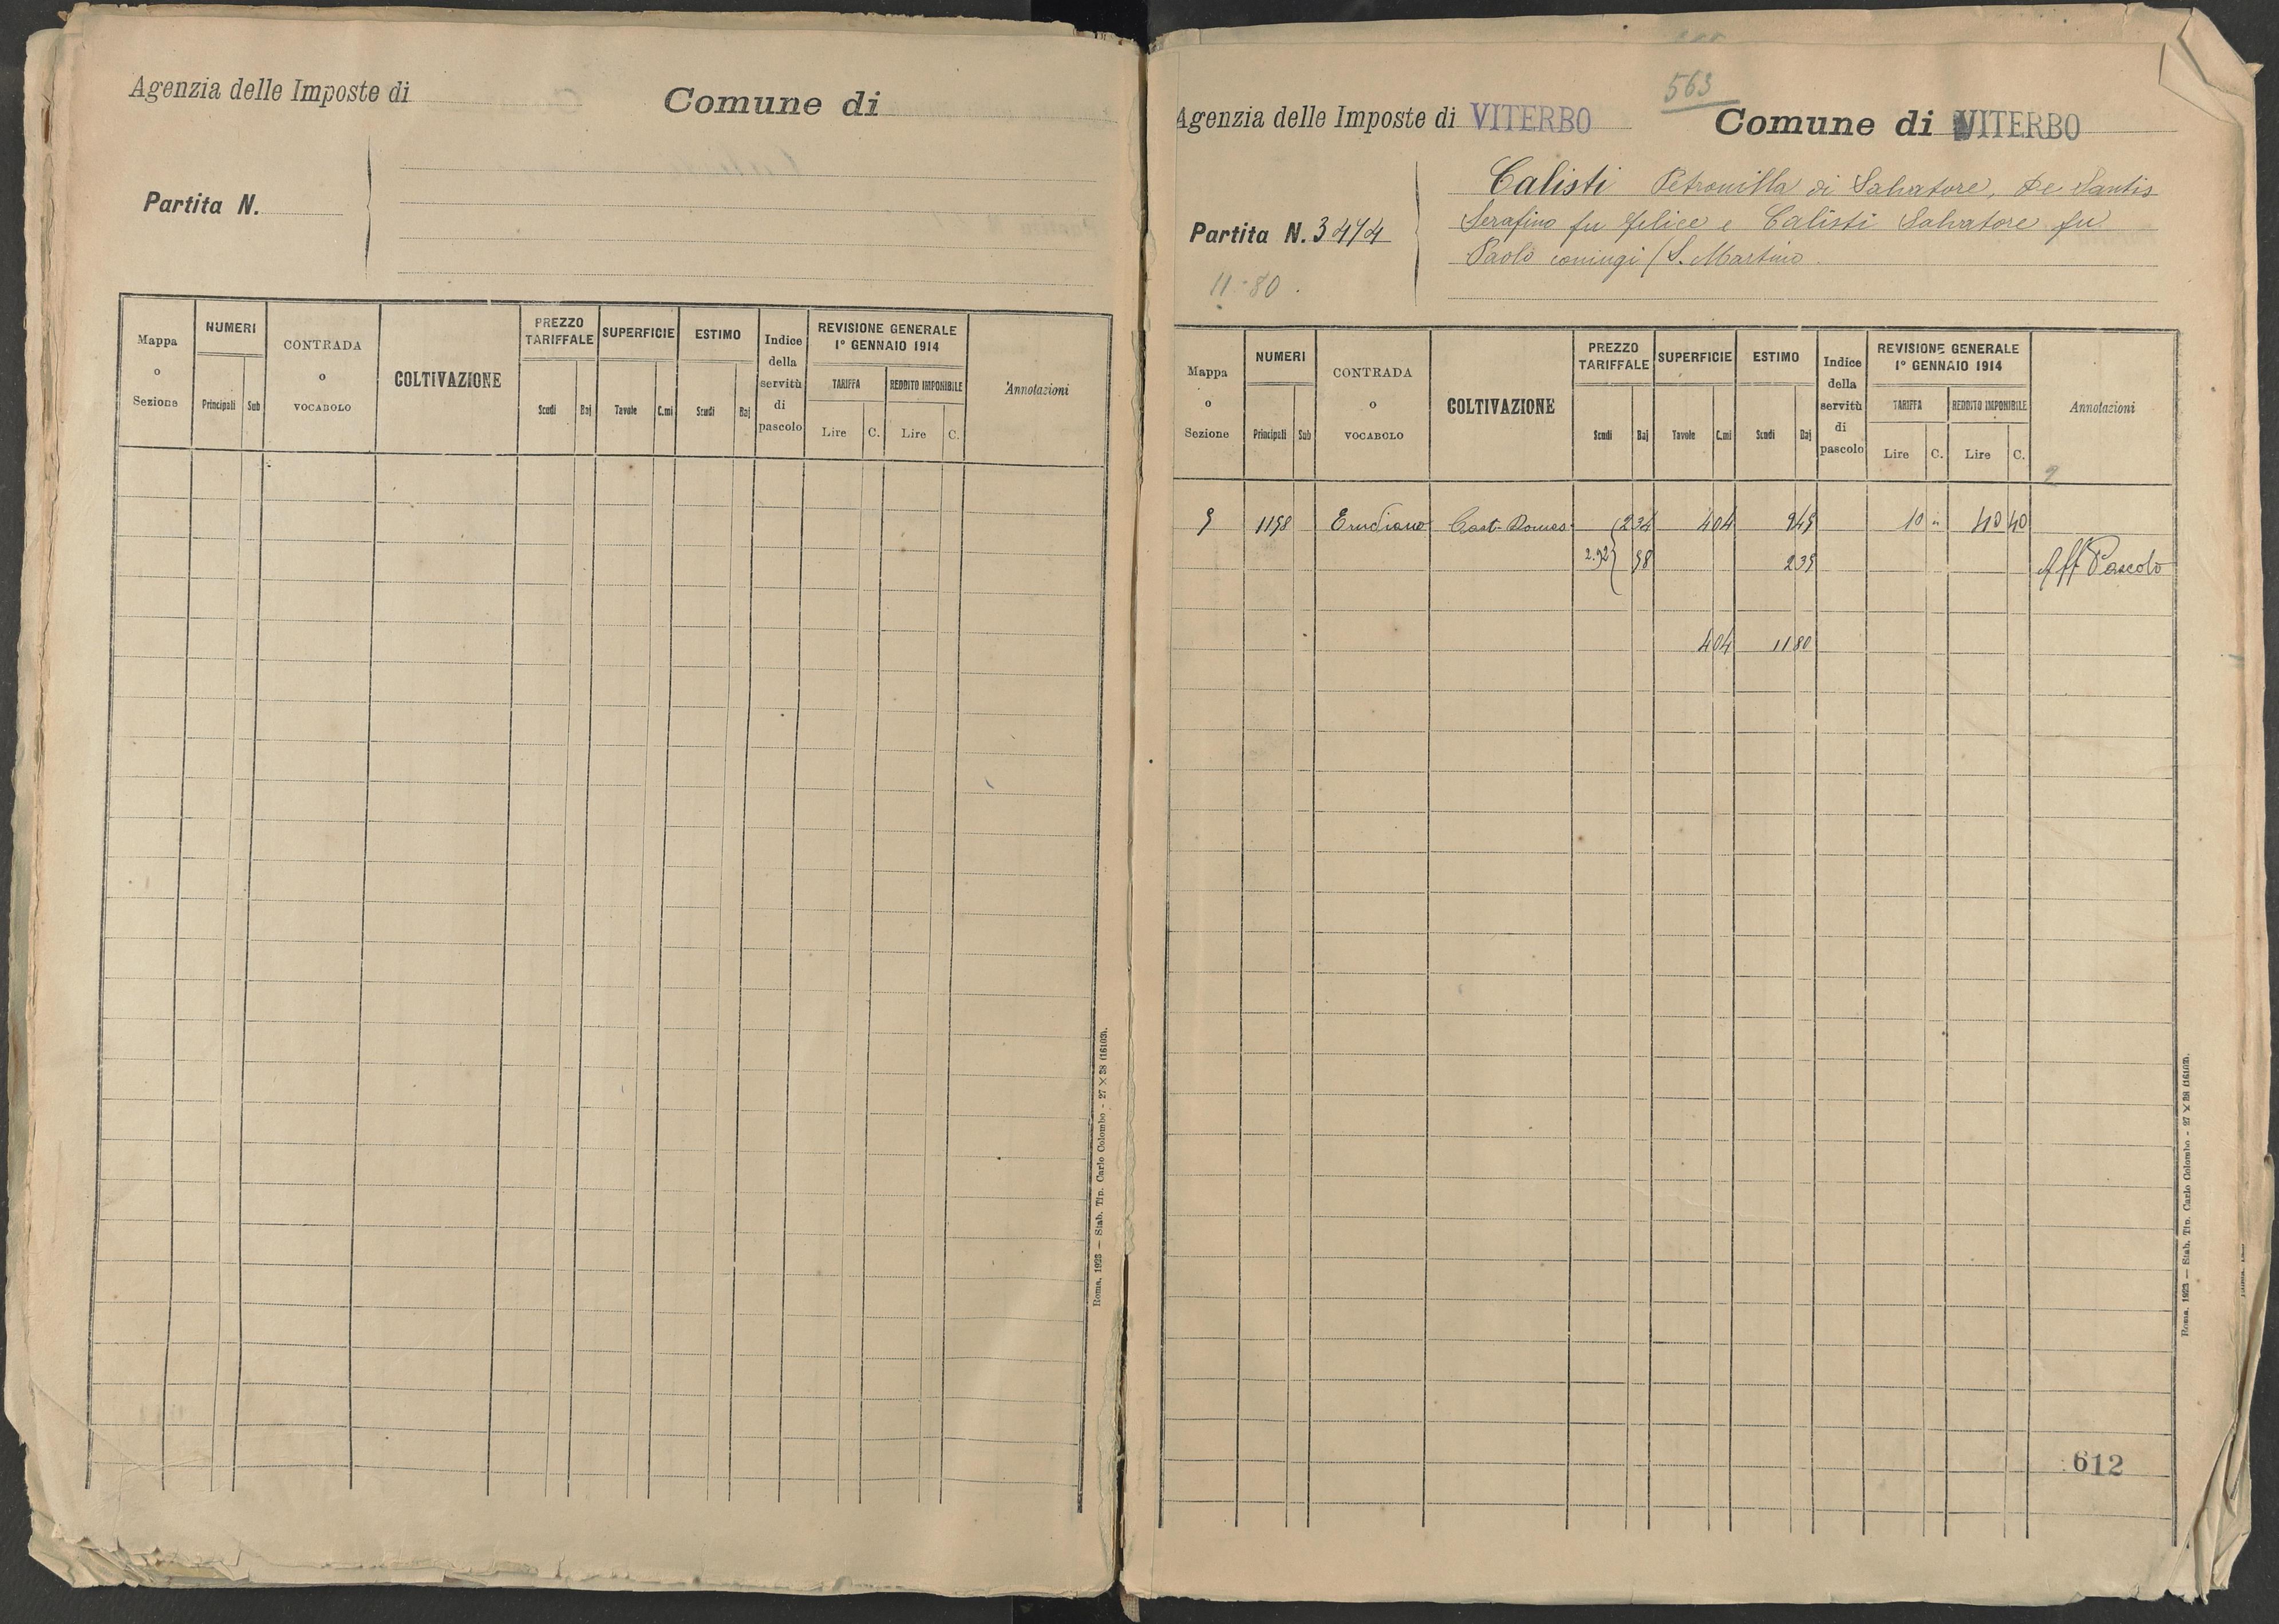 Agenzia delle Imposte di
Comune di
Partita N.
Mappa o Sezione
NUMERI
Principali Sub
CONTRADA o VOCABOLO
COLTIVAZIONE
PREZZO TARIFFALE
Scudi Baj
SUPERFICIE
Tavole C.mi
ESTIMO
Scudi Baj
Indice della servitù di pascolo
REVISIONE GENERALE
1° GENNAIO 1914
TARIFFA
Lire C.
REDDITO IMPONIBILE
Lire C.
Annotazioni
Roma, 1923 — Stab. Tip. Carlo Colombo - 27 × 38 (16103).
563
Agenzia delle Imposte di VITERBO
Comune di VITERBO
Calisti Petronilla di Salvatore, De Santis
Serafino fu Felice e Calisti Salvatore fu
Paolo coniugi / S. Martino
Partita N. 3474
11-80.
Mappa o Sezione
NUMERI
Principali Sub
CONTRADA o VOCABOLO
COLTIVAZIONE
PREZZO TARIFFALE
Scudi Baj
SUPERFICIE
Tavole C.mi
ESTIMO
Scudi Baj
Indice della servitù di pascolo
REVISIONE GENERALE
1° GENNAIO 1914
TARIFFA
Lire C.
REDDITO IMPONIBILE
Lire C.
Annotazioni
9 1198 Cast. 2 34 4 04 9 45 10 " 40 40
2.92 58 2 35 Aff Pascolo
4 04 11 80
612
Roma, 1923 — Stab. Tip. Carlo Colombo - 27 × 38 (16103).